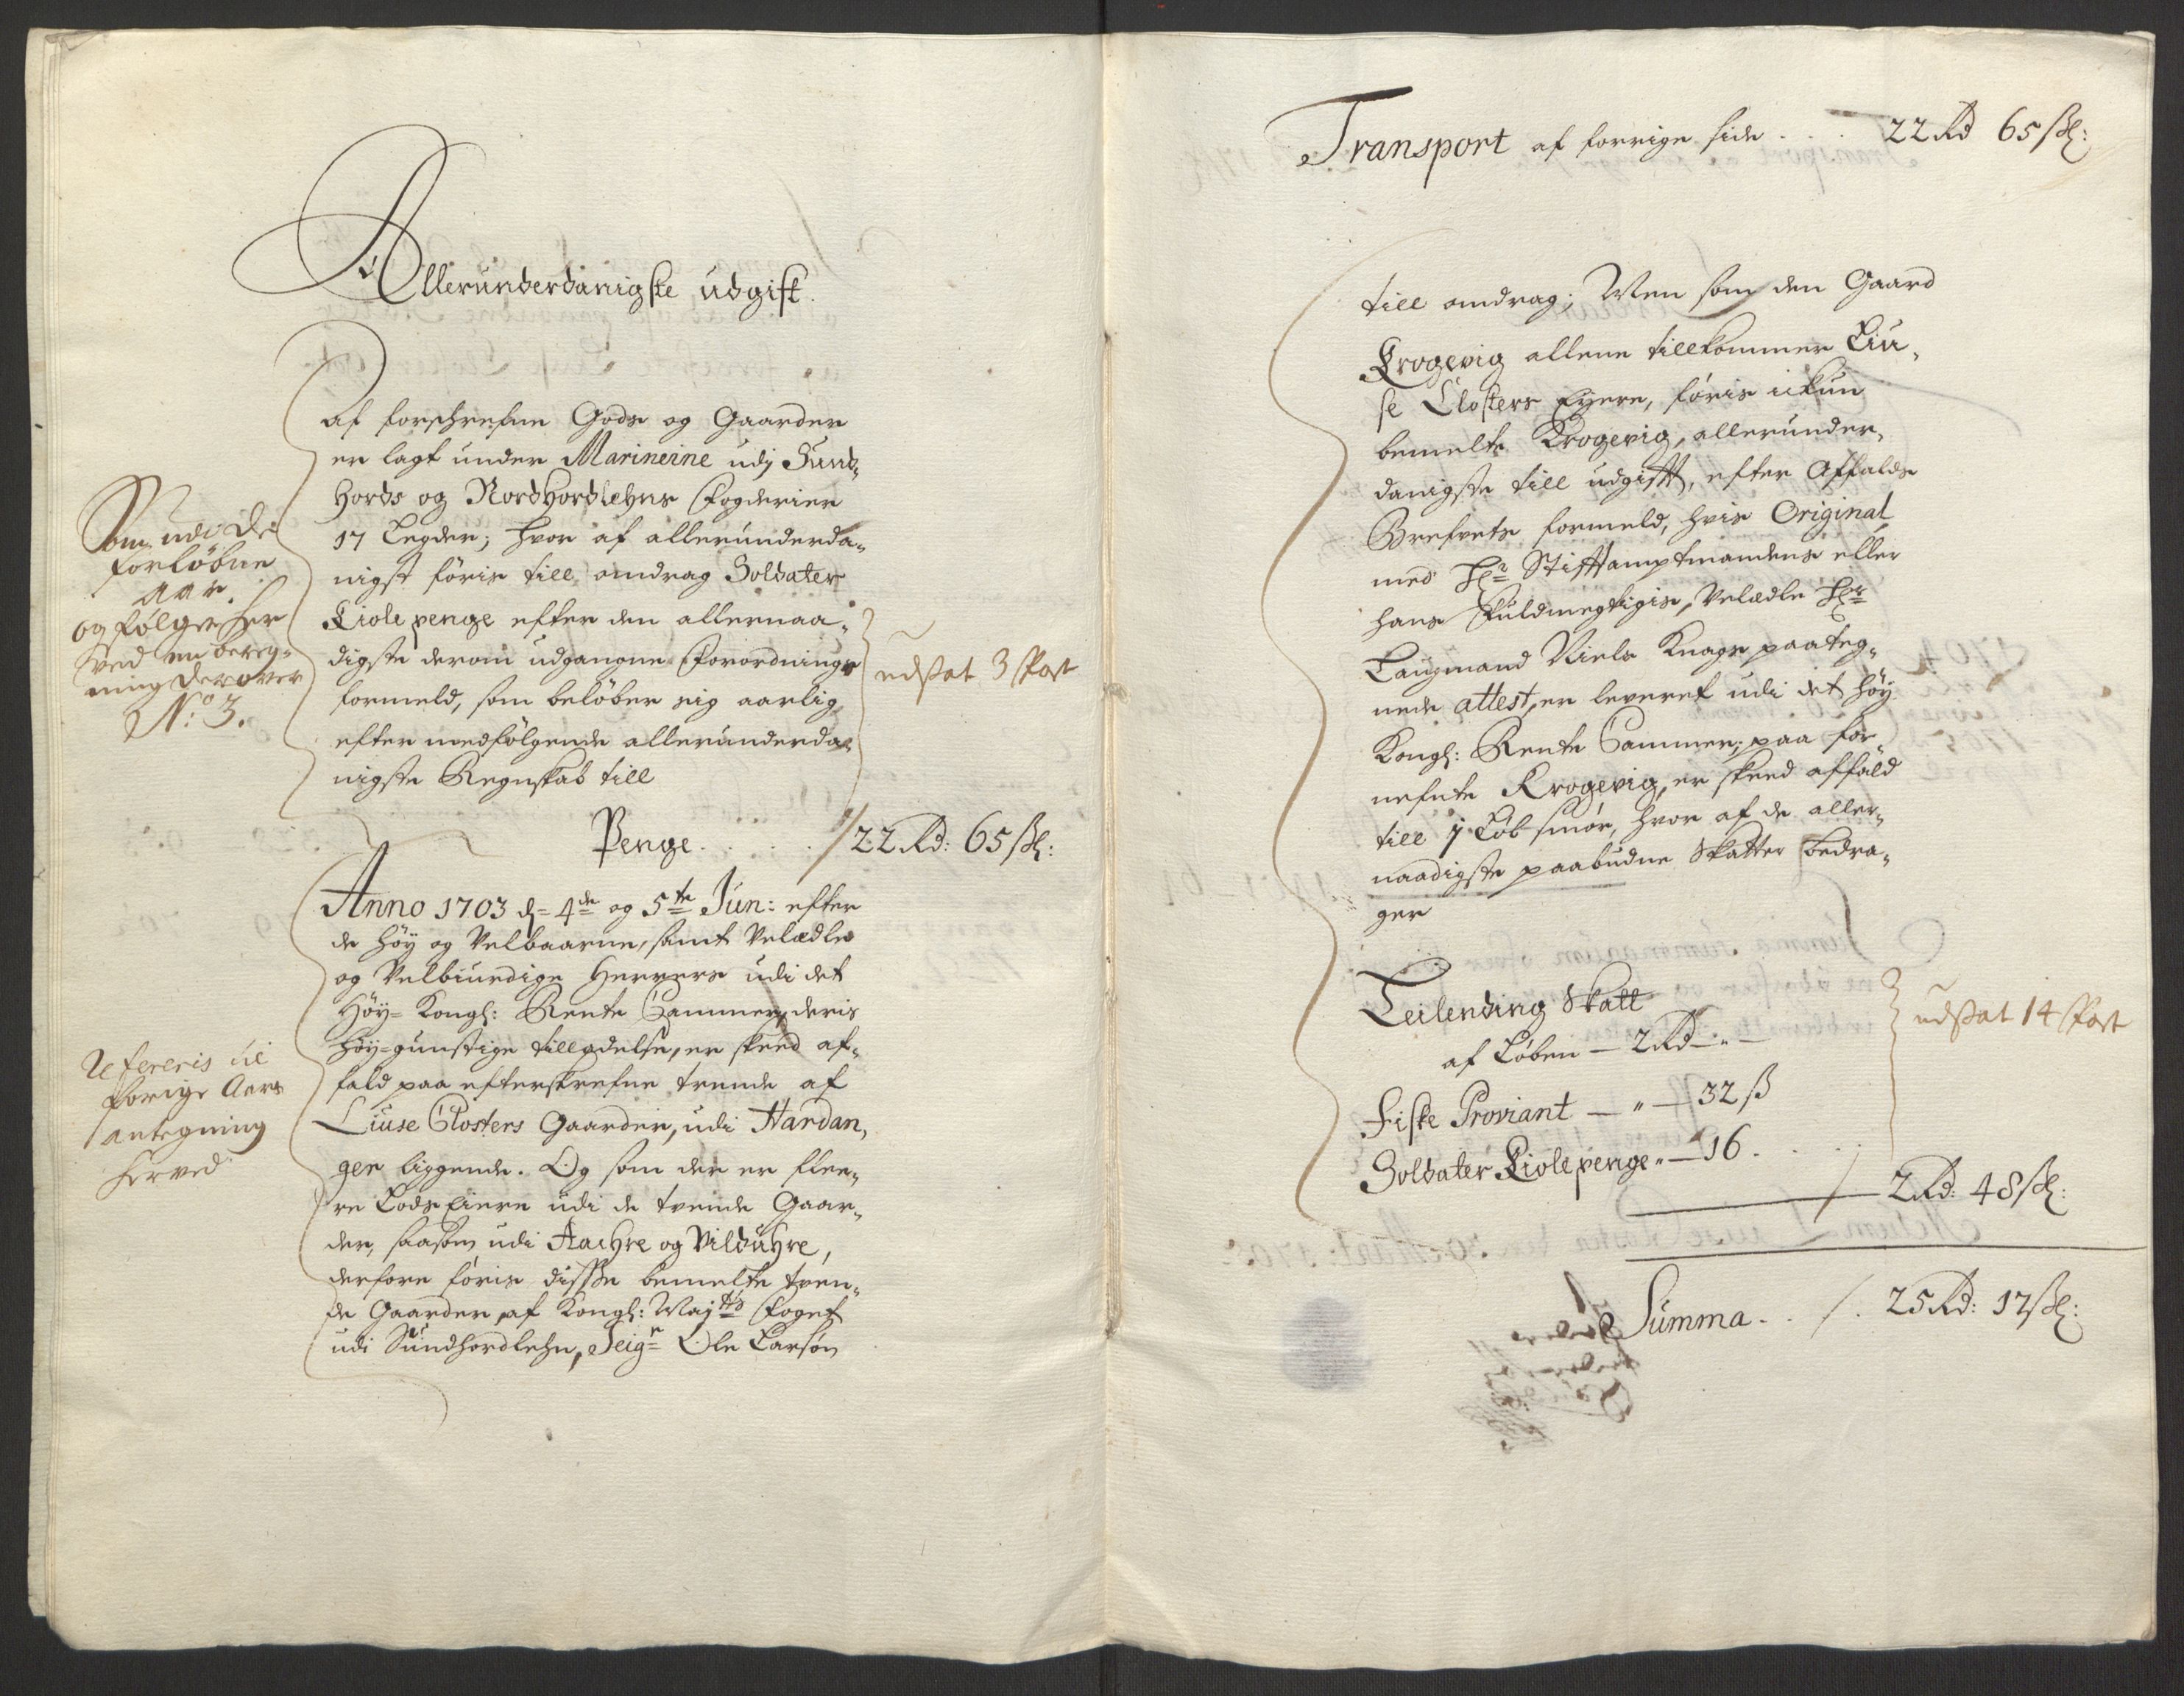 Allerunderdanigste udgift.
af forschrefne Godz og Gaarder
er lagt under Marineine udj Sund-
hords og Nordhordlehns Fogderier
17 Legder; hvor af allerunderda-
nigst föris till omdrag Soldater
Kiole penge efter den allernaa-
digste derom udgangne Forordnings
formeld, som belöber sig aarlig
efter medfölgende allerunderda-
nigste Regnskab till
Penge . . . . 22 Rd: 65 ß:
Som udi de
forløbne
Aar.
og følger her
ved en bereg-
ning derover
No: 3.
udsat 3 Post
Anno 1703 d= 4de og 5te Jun: efter
de höy og Velbaarne, samt Velædle
og Velbiurdige Herrers udi det
Höy= Kongl: Rente Cammer, deris
höy=gunstige tilladelse, er skeed af-
fald paa efterskrefne trende af
Liuse Closters Gaarder, udi Hardan-
ger liggende. Og som der er flee-
re Lodz Eiere udi de tvende Gaar-
der, saasom udi Aachre og Vilduhre,
derfore föris disse bemelte tven-
de Gaarder af Kongl: Maijts Foget
udi Sundhordlehn, Seigr Ole Larsön
Refereris til
forige Aars
antegning
herved
Transport af forrige side . . . 22 Rd 65 ß:
till omdrag; Men som den Gaard
Krogevig allene tillkommer Liu-
se Closters Eyere, föris ickun
bemelte Krogevig, allerunder-
danigste till udgifft, efter Affalds
Brefvets formeld, hvis Original
med Hr Stifftamptmandens eller
hans fuldmegtigis, Velædle Hr
Laugmand Niels Knags paateg-
nede attest, er leveret udi det höy
Kongl: Rente Cammer; paa for-
nefnte Krogevig, er skeed affald
till 1 Löb smör, hvor af de aller-
naadigste paabudne Skatter bedra-
ger
Leilending Skatt
af Löben — 2 Rd — " —
Fiske Proviant — " — 32 ß
Soldater Kiole penge " — 16 . . .
udsat 14 Post
2 Rd: 48 ß:
Summa . . . 25 Rd: 17 ß: